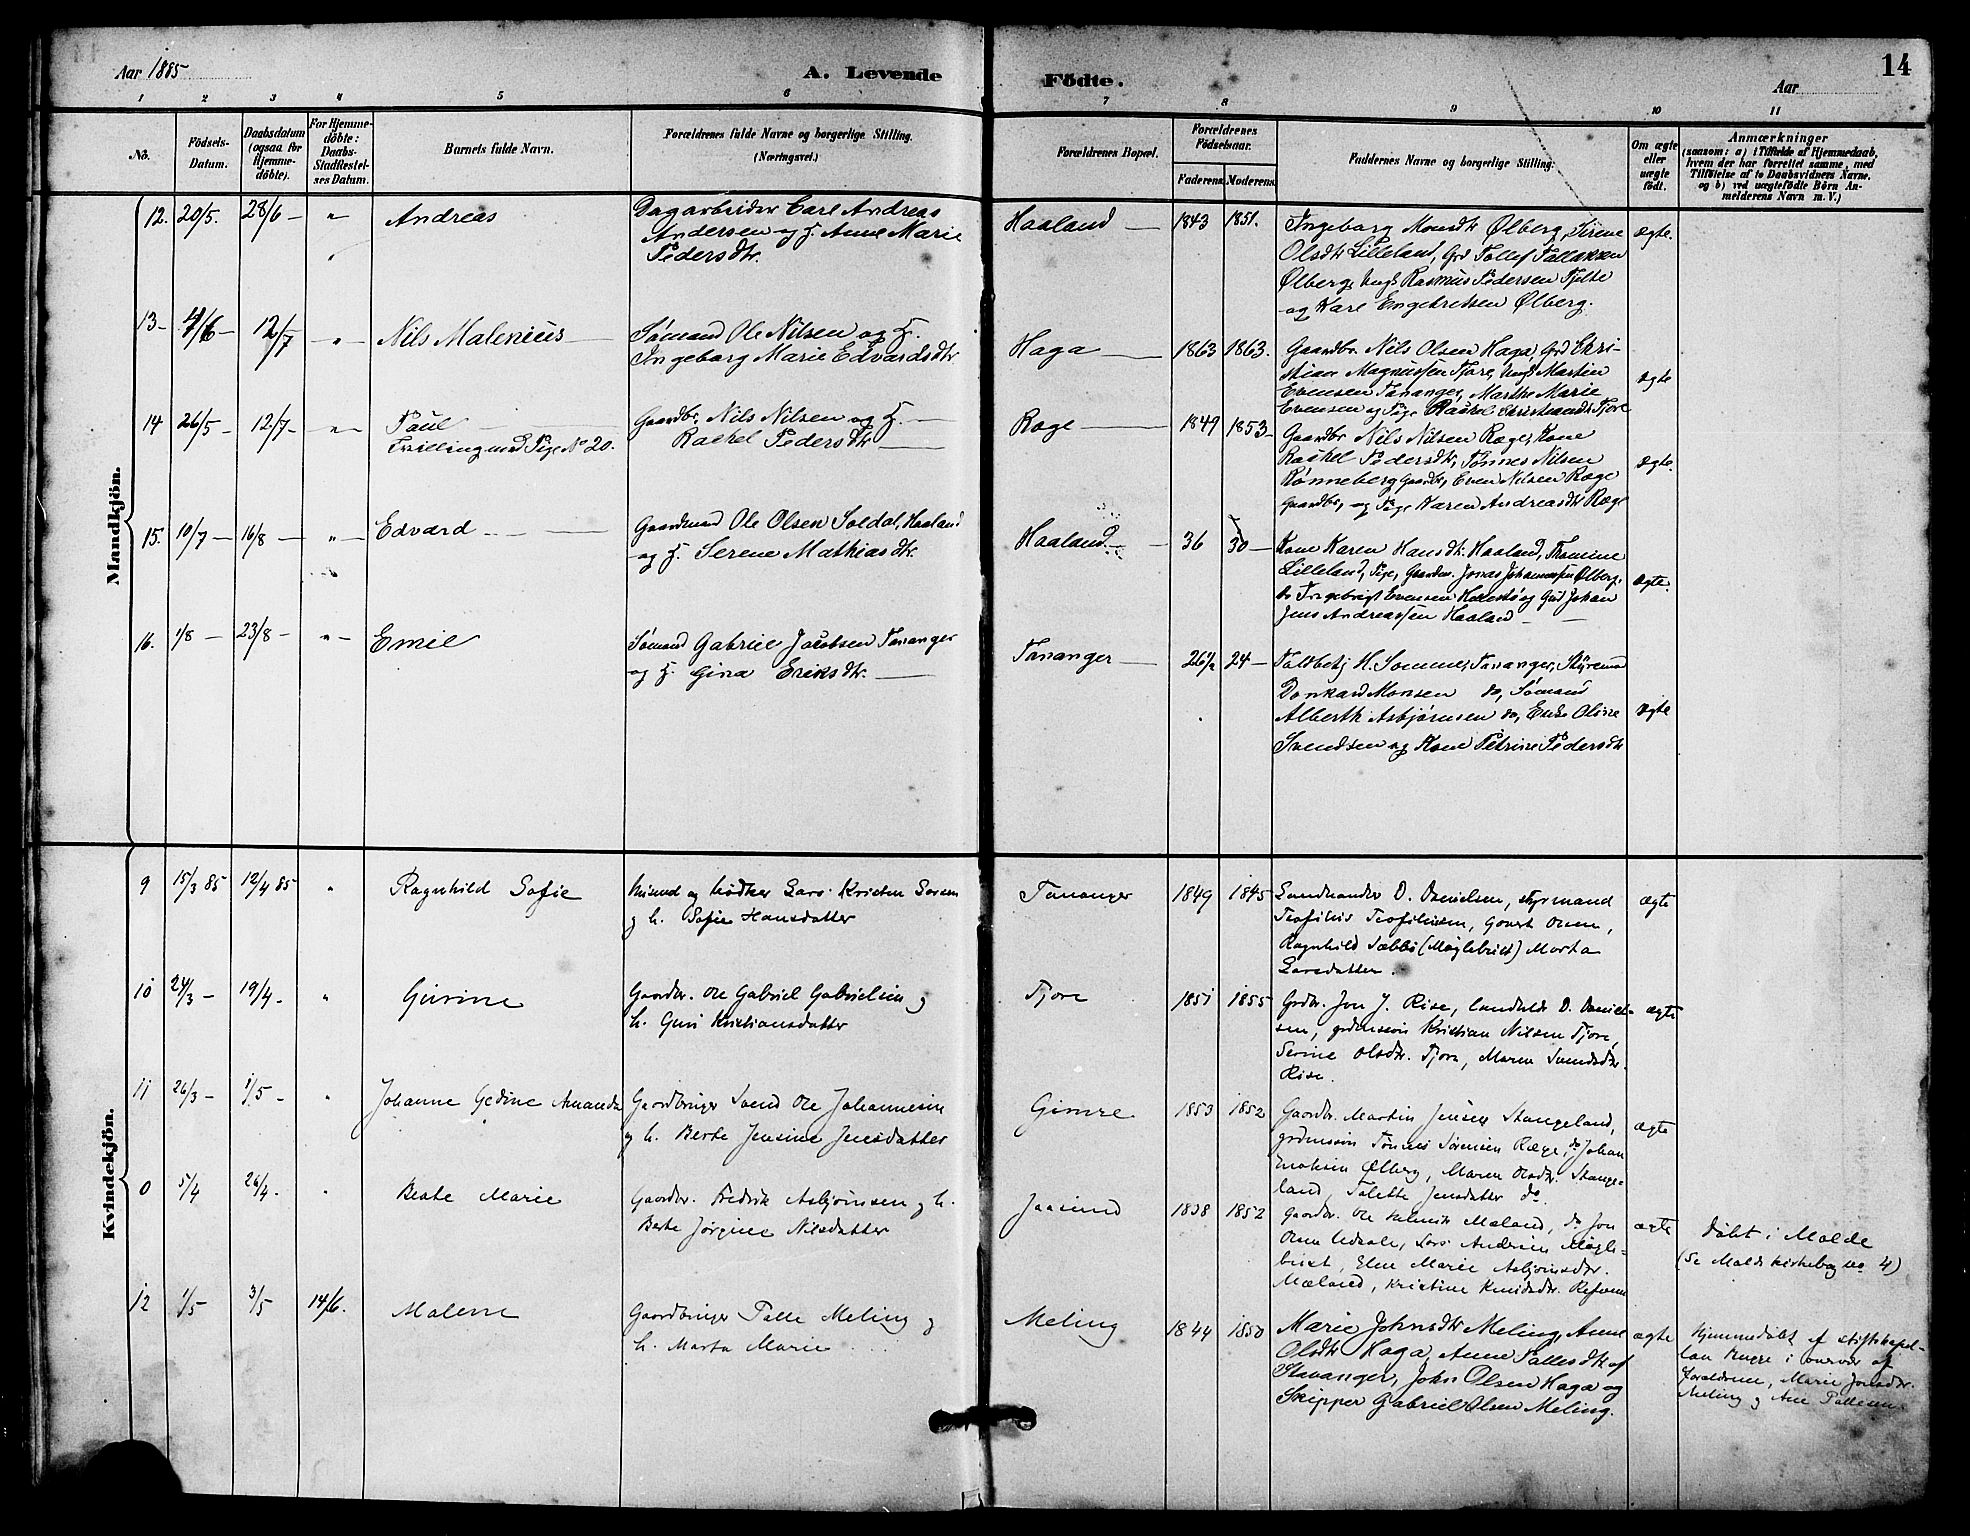 Aar 1885
A. Levende
Födte.
Aar
14
1 2 3 4 5 6 7 8 9 10 11
No.
Födsels-
Datum.
Daabsdatum
(ogsaa for
Hjemme-
döbte).
For Hjemme-
döbte:
Daabs-
Stadfæstel-
ses Datum.
Barnets fulde Navn.
Forældrenes fulde Navne og borgerlige Stilling.
(Næringsvei.)
Forældrenes Bopæl.
Forældrenes
Födselsaar.
Faderens. Moderens.
Faddernes Navne og borgerlige Stilling.
Om ægte
eller
uægte
födt.
Anmærkninger
(saasom: a) i Tilfælde af Hjemmedaab,
hvem der har forrettet samme, med
Tilföielse af to Daabsvidners Navne,
og b) ved uægtefödte Börn An-
melderens Navn m. V.)
Mandkjön.
12. 20/5. 28/6 — " Andreas
Dagarbeider Carl Andreas
Andersen og H. Anne Marie
Pedersdtr.
Haaland — 1843 1851.
Ingeborg Monsdtr Ølberg, Sirene
Olsdtr Lilleland, Grd Tollef Tollaksen
Ølberg, Ungk Rasmus Pedersen Tjelte
og Kare Engebretsen Ølberg.
ægte.
13 — 4/6 — 12/7 — " — Nils Malenius —
Sømand Ole Nilsen og H.
Ingeborg Marie Edvardsdtr
Haga — 1863 1863.
Gaardbr Nils Olsen Haga, Grd Chri-
stian Magnussen Tjore, Ungk Martin
Evensen Tananger, Marthe Marie
Evensen og Pige Rachel Christiansdtr Tjore
ægte
14 26/5 — 12/7 — " — Paul —
Tvilling med Pige No 20.
Gaardbr. Nils Nilsen og H. —
Rachel Pedersdtr —
Ræge — 1849 1853 —
Gaardbr Nils Nilsen Ræge, Kone
Rachel Pedersdtr, Tønnes Nilsen
Rønneberg Gaardbr, Even Nilsen Ræge
Gaardbr, og Pige Karen Andreasdtr Ræge
ægte.
15. 10/7 — 16/8 — " — Edvard —
Gaardmand Ole Olsen Soldal, Haaland
og H. Serene Mathiasdtr
Haaland — 36 30 —
Kone Karen Hansdtr. Haaland, Tomine
Lilleland, Pige, Gaardm. Jonas Johannessen Ølberg,
do Ingebrigt Evensen og Grd Johan
Jens Andreassen Haaland —
ægte.
16. 1/8 — 23/8 — " — Emil
Sømand Gabriel Jacobsen Tananger
og H. Gina Eriksdtr. —
Tananger — 26½ 24 —
Toldbetj H. Sommer, Tananger, Styrmand
Dankard Monsen do, Sømand
Alberth Asbjørnsen do, Enke Oline
Svendsen og Kone Petrine Pedersdtr
ægte
Kvindekjön.
9 15/3 85 12/4 85 " Ragnhild Sofie
og bødker Lars Kristen Larsen
og h. Sofie Hansdatter
Tananger 1849 1845
Landhandler D. Danielsen, styrmand
Teofilus Teofilusen,
Ragnhild Sæbbø (Møglebust) Marta
Larsdatter.
ægte
10 24/3 — 19/4 — " Gurine
Gaardbr. Ole Gabriel Gabrielsen og
h. Guri Kristiansdatter
Tjore 1851 1855
Grdbr. Jon J. Rise, landhdl. D. Daniel-
sen, grdmssøn Kristian Nilsen Tjore,
Serine Olsdtr. Tjore, Maren Svendsdtr.
Rise.
ægte
11 26/3 — 1/5 — " Johanne Gedine Amanda
Gaardbruger Svend Ole Johannesen
og h. Berte Jensine Jensdatter
Gimre 1853 1852
Gaardbr. Martin Jensen Stangeland,
grdmssøn Tønnes Sørensen Ræge, do Johan
Enoksen Ølberg, Maren Olsdtr. Stange-
land, Tolette Jensdatter do.
ægte
0 5/4 26/4. " Beate Marie
Gaardbr. Fredrik Asbjørnsen og h.
Berte Jørgine Nilsdatter
Jaasund 1838 1852
Gaardbr. Ole Helmik Mæland, do Jon
Olsen Udsole, Lars Andersen Møgle-
bust, Elen Marie Asbjørnsdtr.
Mæland, Kristine Knudsdtr. Refsnes
ægte
Døbt i Molde
(Se Molds kirkebog no 4)
12 1/5 3/5 14/6. Malene
Gaardbruger Tolle Meling og
h. Marta Marie
Meling 1844 1850
Marie Johnsdtr Meling, Anne
Olsdtr Haga, Anne Tollesdtr af
Stavanger, John Olsen Haga og
Skipper Gabriel Olsen Meling.
ægte
Hjemmedøbt af stiftskapel-
lan i nærvær af
forældrene, Marie Jonsdtr.
Meling og Ane Tollesen